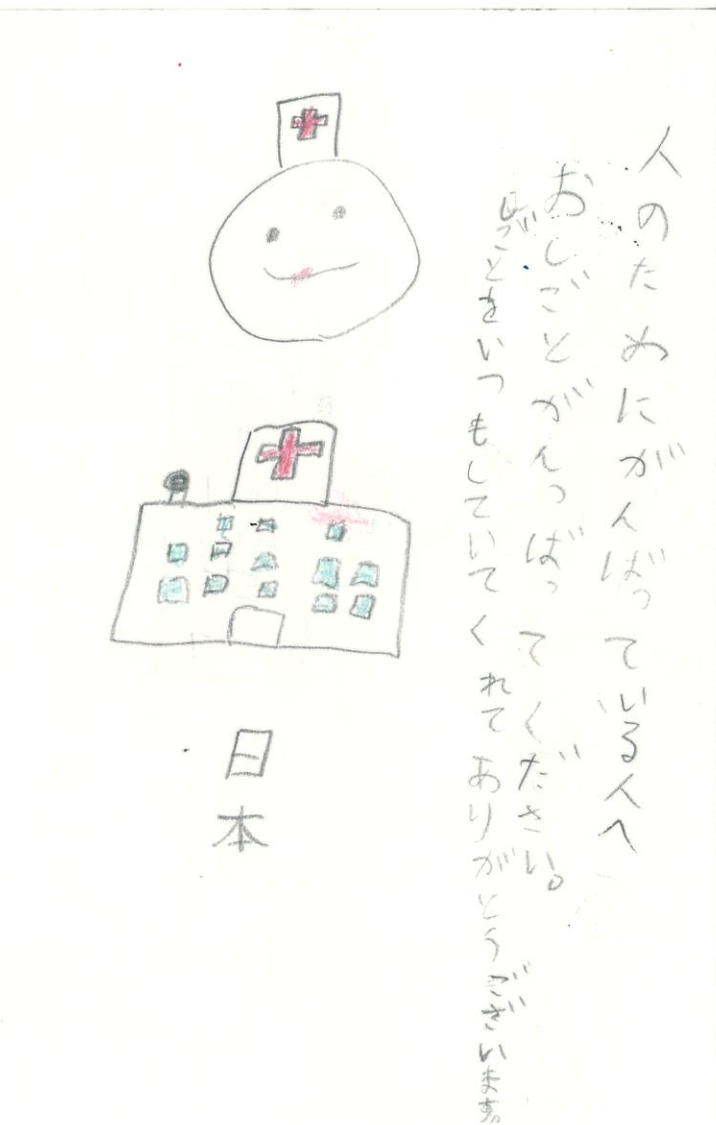 人のためにがんばっている人へ
おしごとがんっばってください。
しごとをいつもしていてくれてありがとうございます。
日本